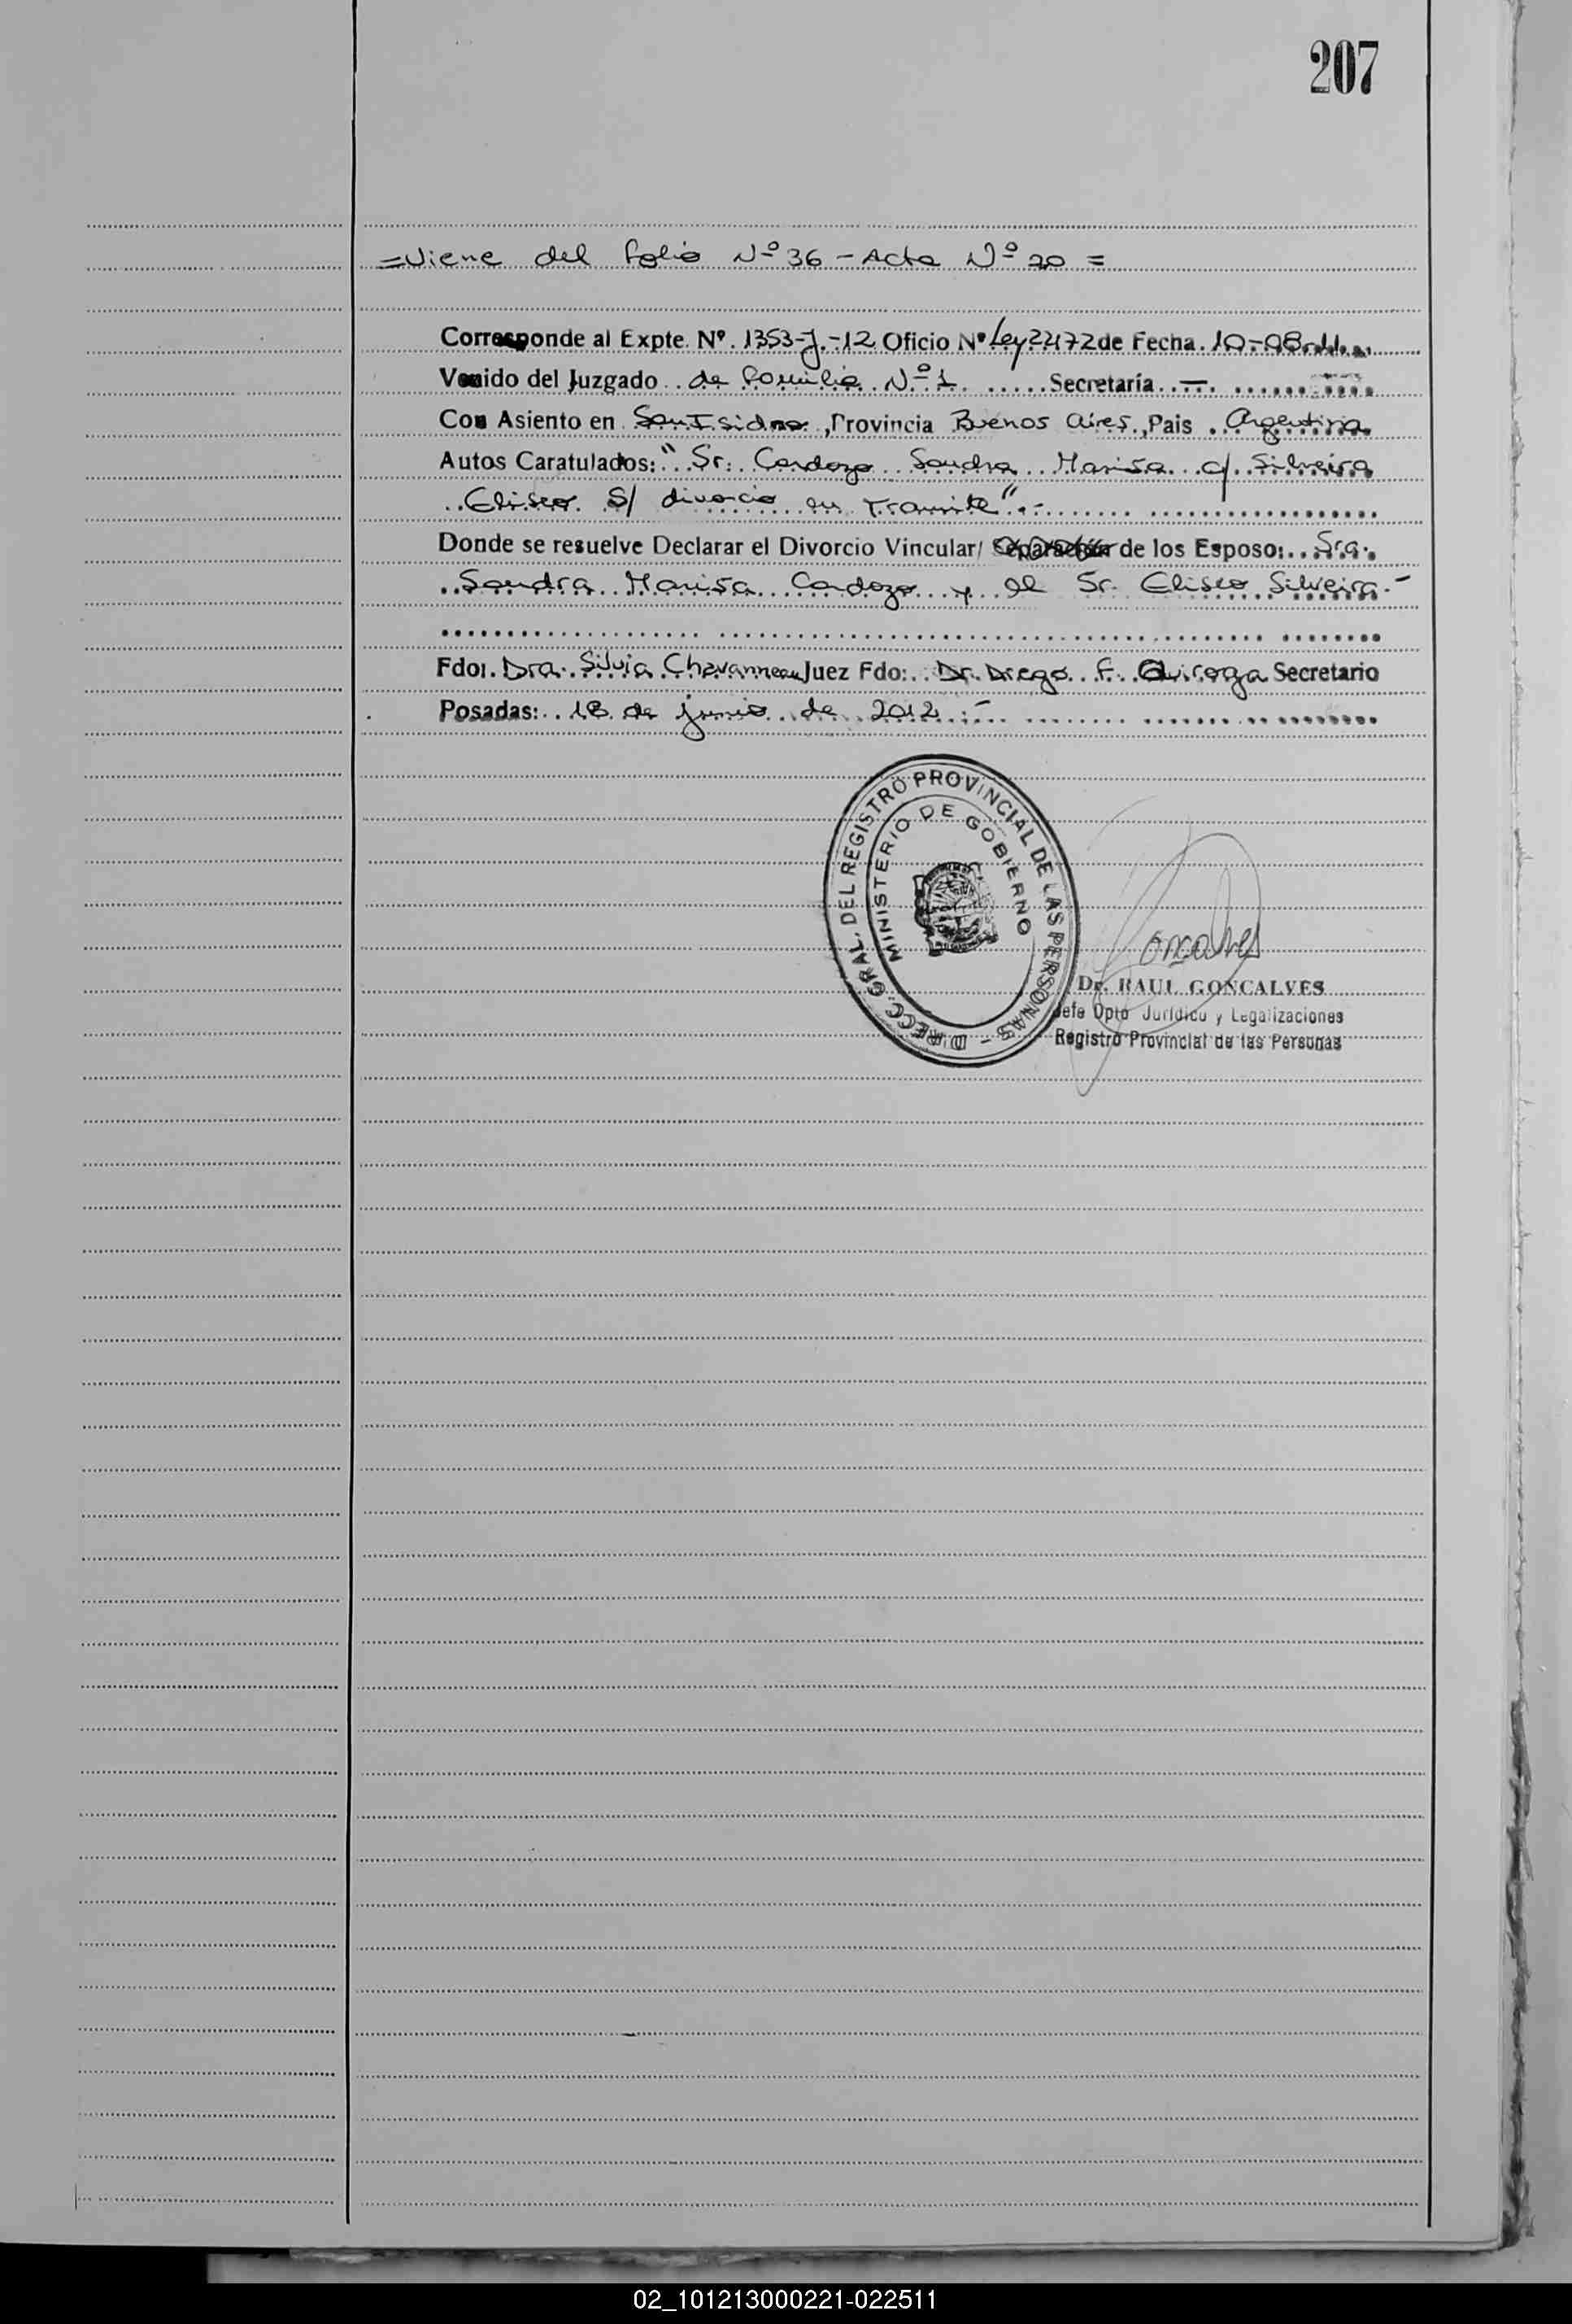 207
=Viene del folio Nº 36 - Acta Nº 20 =
Corresponde al Expte. Nº. 1353-J.-12 Oficio Nº Ley 22172 de Fecha. 10-08-11.
Venido del Juzgado de familia Nº 1. Secretaría. —.
Con Asiento en San Isidro, Provincia Buenos Aires, Pais. Argentina
Autos Caratulados: "Sr. Cardozo Sandra Marisa c/ Silveira
Eliseo S/ divorcio en Tramite".-
Donde se resuelve Declarar el Divorcio Vincular/ Separación de los Esposo: Sra.
Sandra Marisa Cardozo y el Sr. Eliseo Silveira.-
Fdo: Dra. Silvia Chavanneau Juez Fdo: Dr. Diego F. Quiroga Secretario
Posadas: 18 de junio de 2012.-
DIRECC. GRAL. DEL REGISTRO PROVINCIAL DE LAS PERSONAS -
MINISTERIO DE GOBIERNO
Goncalves
Dr. RAUL GONCALVES
Jefe Dpto Jurídico y Legalizaciones
Registro Provincial de las Personas
02_101213000221-022511